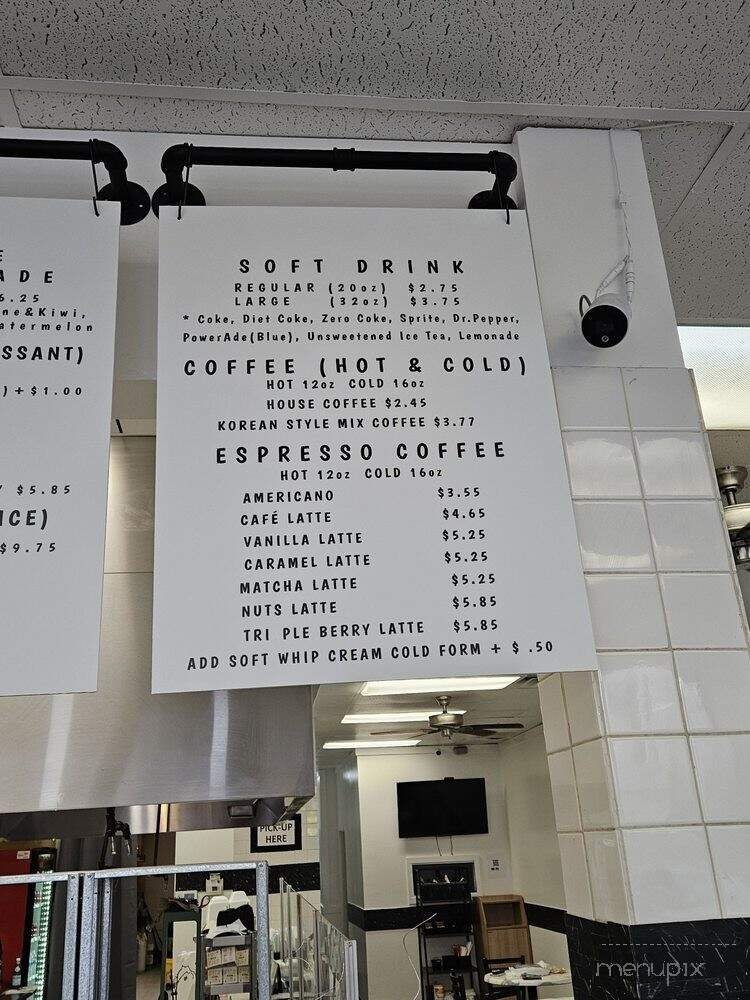 ADE
6.25
ne&Kiwi,
atermelon
SSANT)
)+$1.00
$5.85
ICE)
$9.75
SOFT DRINK
REGULAR (20oz) $2.75
LARGE (32oz) $3.75
* Coke, Diet Coke, Zero Coke, Sprite, Dr.Pepper,
PowerAde(Blue), Unsweetened Ice Tea, Lemonade
COFFEE (HOT & COLD)
HOT 12oz COLD 16oz
HOUSE COFFEE $2.45
KOREAN STYLE MIX COFFEE $3.77
ESPRESSO COFFEE
HOT 12oz COLD 16oz
AMERICANO $3.55
CAFÉ LATTE $4.65
VANILLA LATTE $5.25
CARAMEL LATTE $5.25
MATCHA LATTE $5.25
NUTS LATTE $5.85
TRI PLE BERRY LATTE $5.85
ADD SOFT WHIP CREAM COLD FORM + $ .50
PICK-UP
HERE
menupix